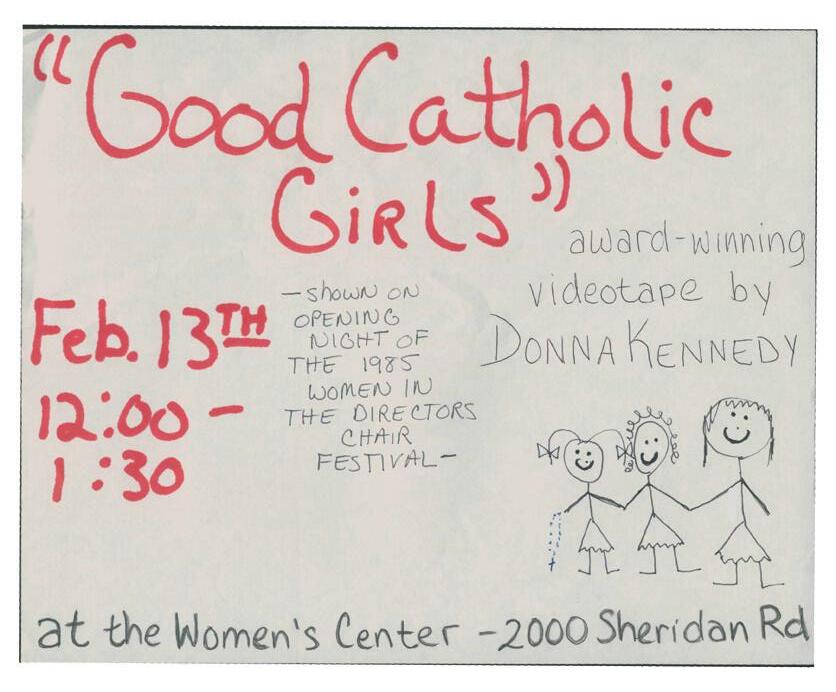 "Good Catholic
Girls"
award-winning
videotape by
DONNA KENNEDY
Feb. 13TH
12:00 –
1:30
– SHOWN ON
OPENING
NIGHT OF
THE 1985
WOMEN IN
THE DIRECTORS
CHAIR
FESTIVAL –
at the Women's Center – 2000 Sheridan Rd